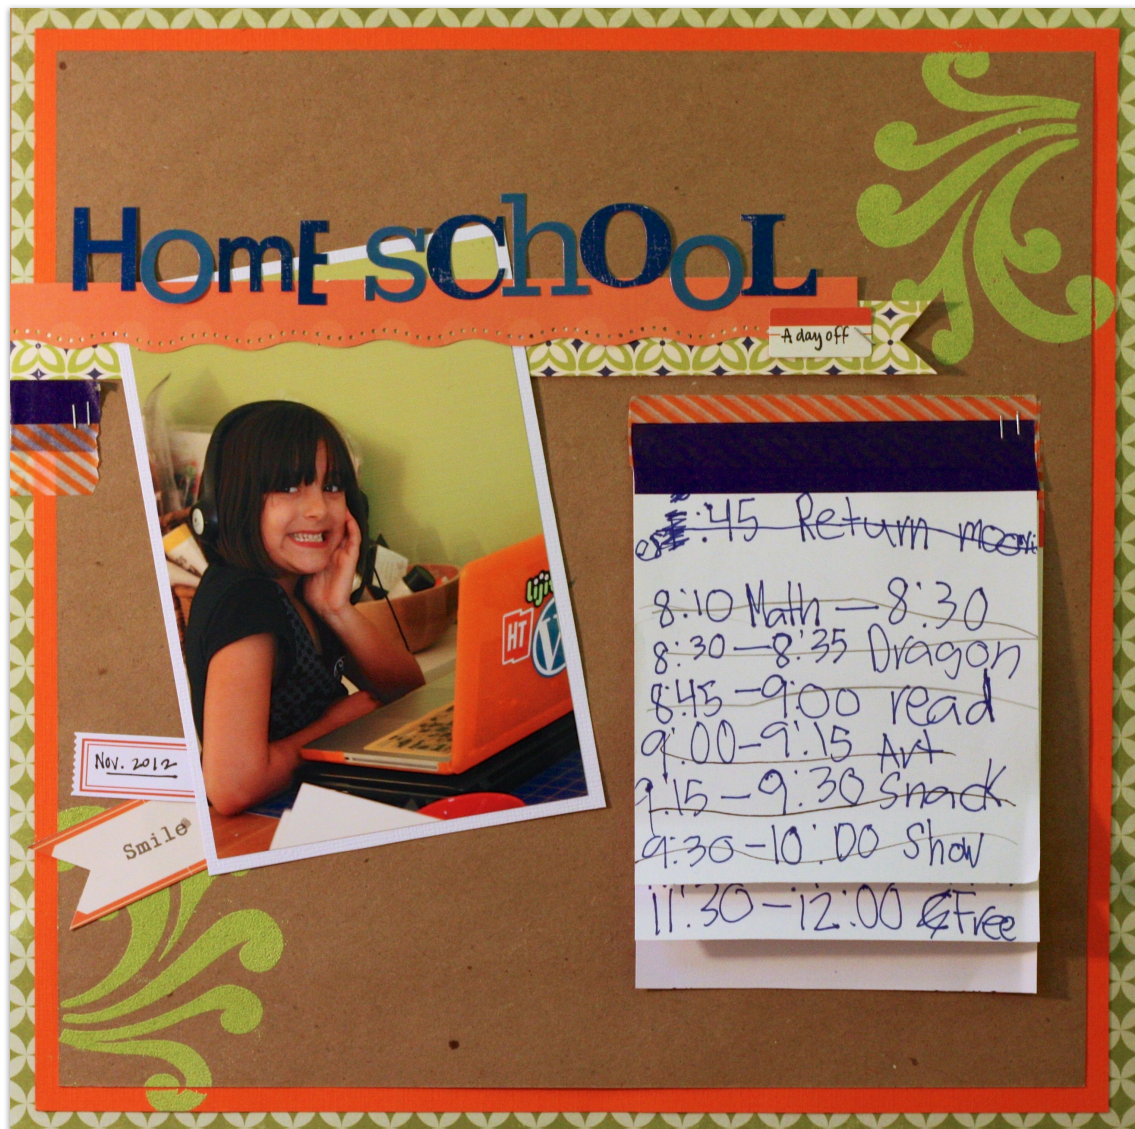 HomE SChOOL
A day off
lijit
HT
W
Nov. 2012
Smile
:45 Return
8:10 Math — 8:30
8:30 — 8:35 Dragon
8:45 — 9:00 read
9:00 - 9:15 Art
9:15 — 9:30 Snack
9:30 - 10:00 Show
11:30 — 12:00 Free